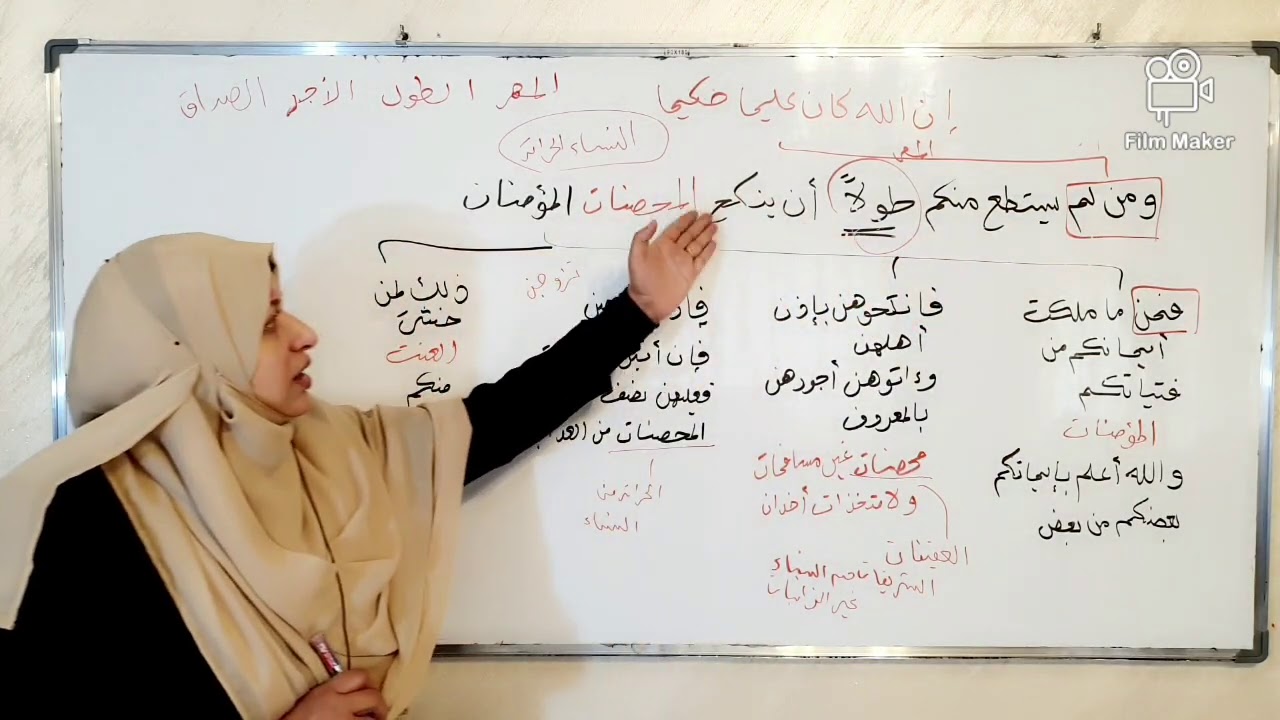 إن الله كان عليما حكيما
المهر الطول الأجر الصداق
النساء الحرائر
المهر
ومن لم يستطع منكم طولاً أن ينكح المحصنات المؤمنات
فمن ما ملكت
أيمانكم من
فتياتكم
المؤمنات
والله أعلم بإيمانكم
بعضكم من بعض
فانكحوهن بإذن
أهلهن
وءاتوهن أجورهن
بالمعروف
محصنات غير مسافحات
ولا متخذات أخدان
العفيفات
الشريفات من النساء
غير الزانيات
تزوجن
فإن أتين
فعليهن نصف
المحصنات من
الحرائر من
النساء
ذلك لمن
خشي
العنت
منكم
Film Maker